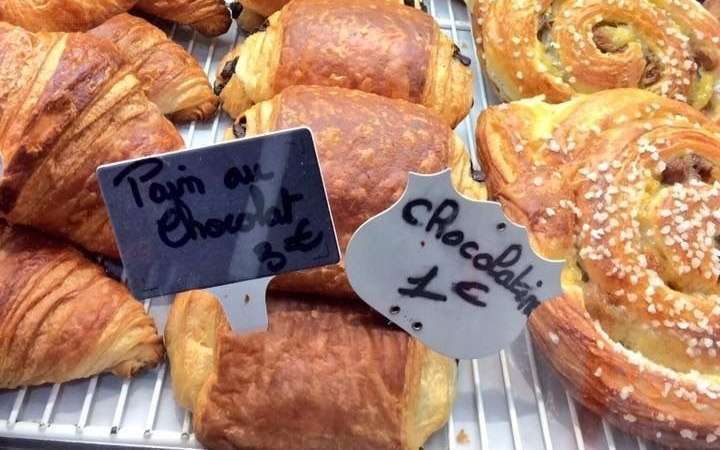 Pain au
chocolat
3€
chocolatine
1€